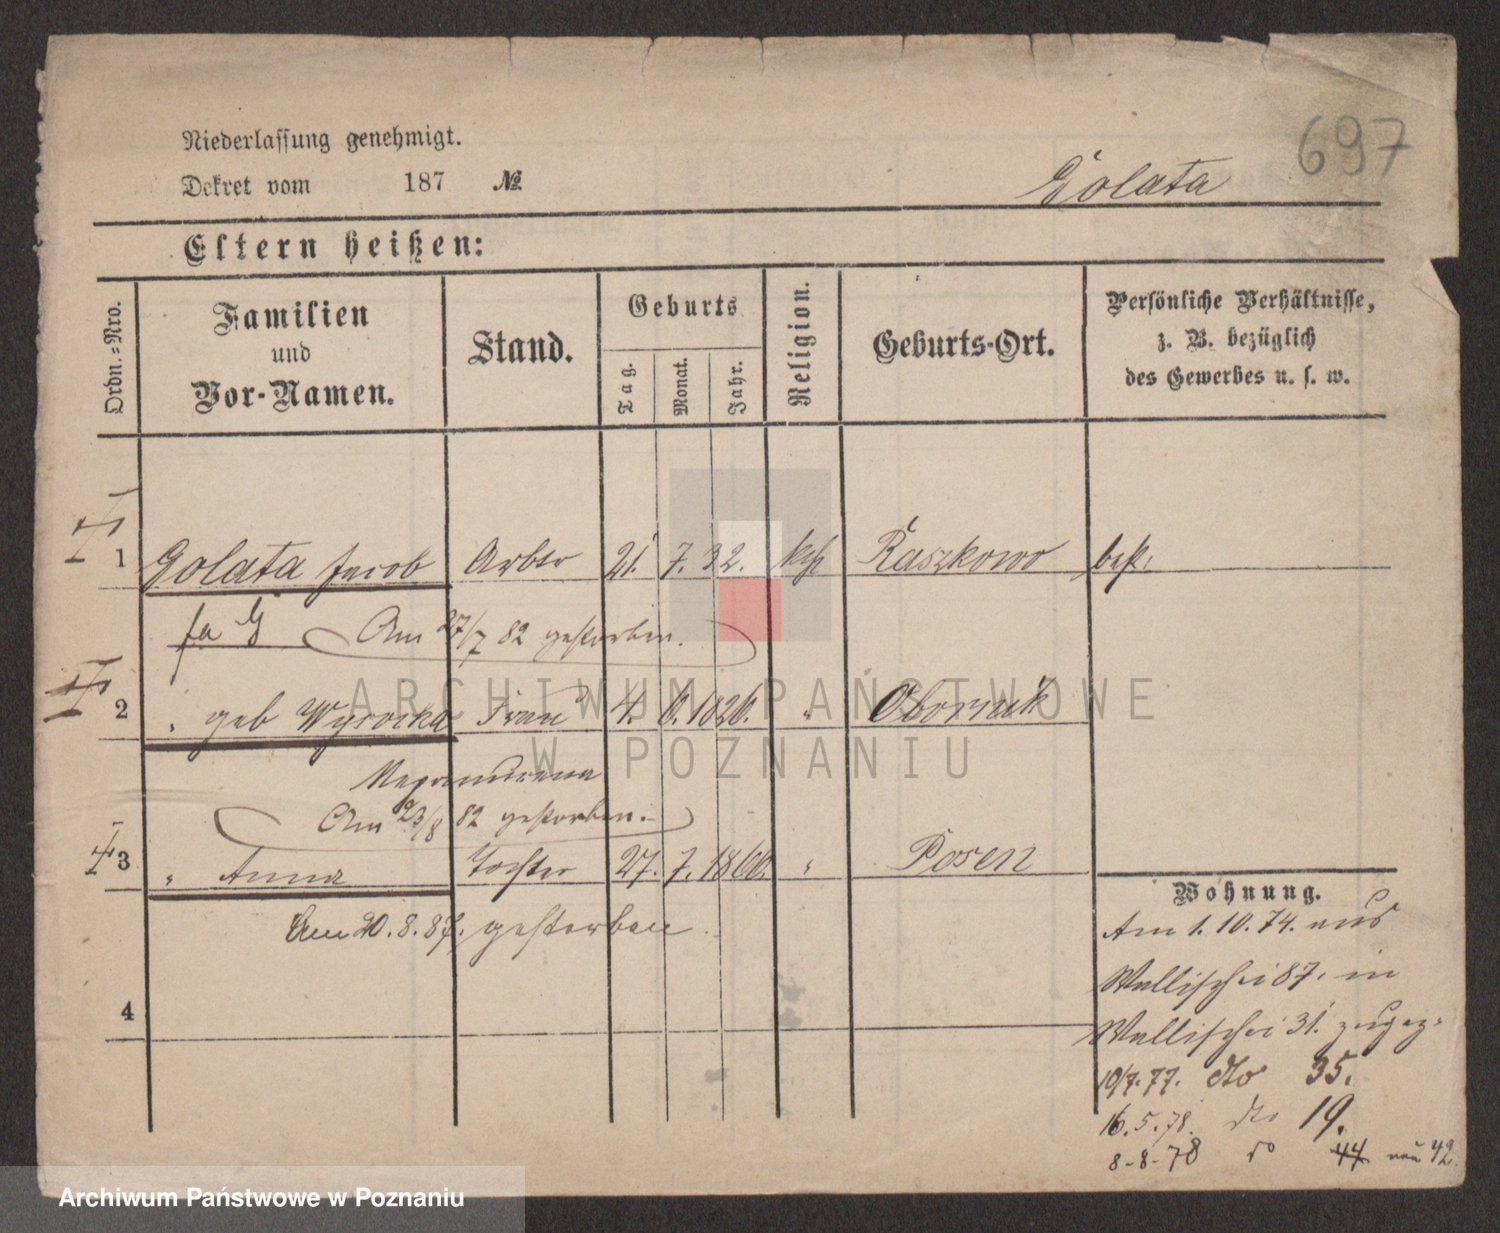 697
Niederlassung genehmigt.
Dekret vom 187 №
Golata
Eltern heißen:
Ordn.=Nro.
Familien und Vor-Namen.
Stand.
Geburts
Tag.
Monat.
Jahr.
Religion.
Geburts-Ort.
Persönliche Verhältnisse, z. B. bezüglich des Gewerbes u. s. w.
1 Golata Jacob Arbtr 21. 7. 32. kth Raszkowo
Am 27/7 82 gestorben.
2 " geb Wyrocka Frau 4. 6. 1826. " Obornik
Am 23/8 82 gestorben.
3 " Anna Tochter 27. 7. 1866. " Posen
Am 20. 8. 87. gestorben
4
Wohnung.
Am 1. 10. 74. aus
Wallischei 87. in
Wallischei 31. zugez.
10/7. 77. dto 35.
16. 5. 78. dto 19.
8-8-78 do 44 neu 42.
ARCHIWUM PAŃSTWOWE
W POZNANIU
Archiwum Państwowe w Poznaniu